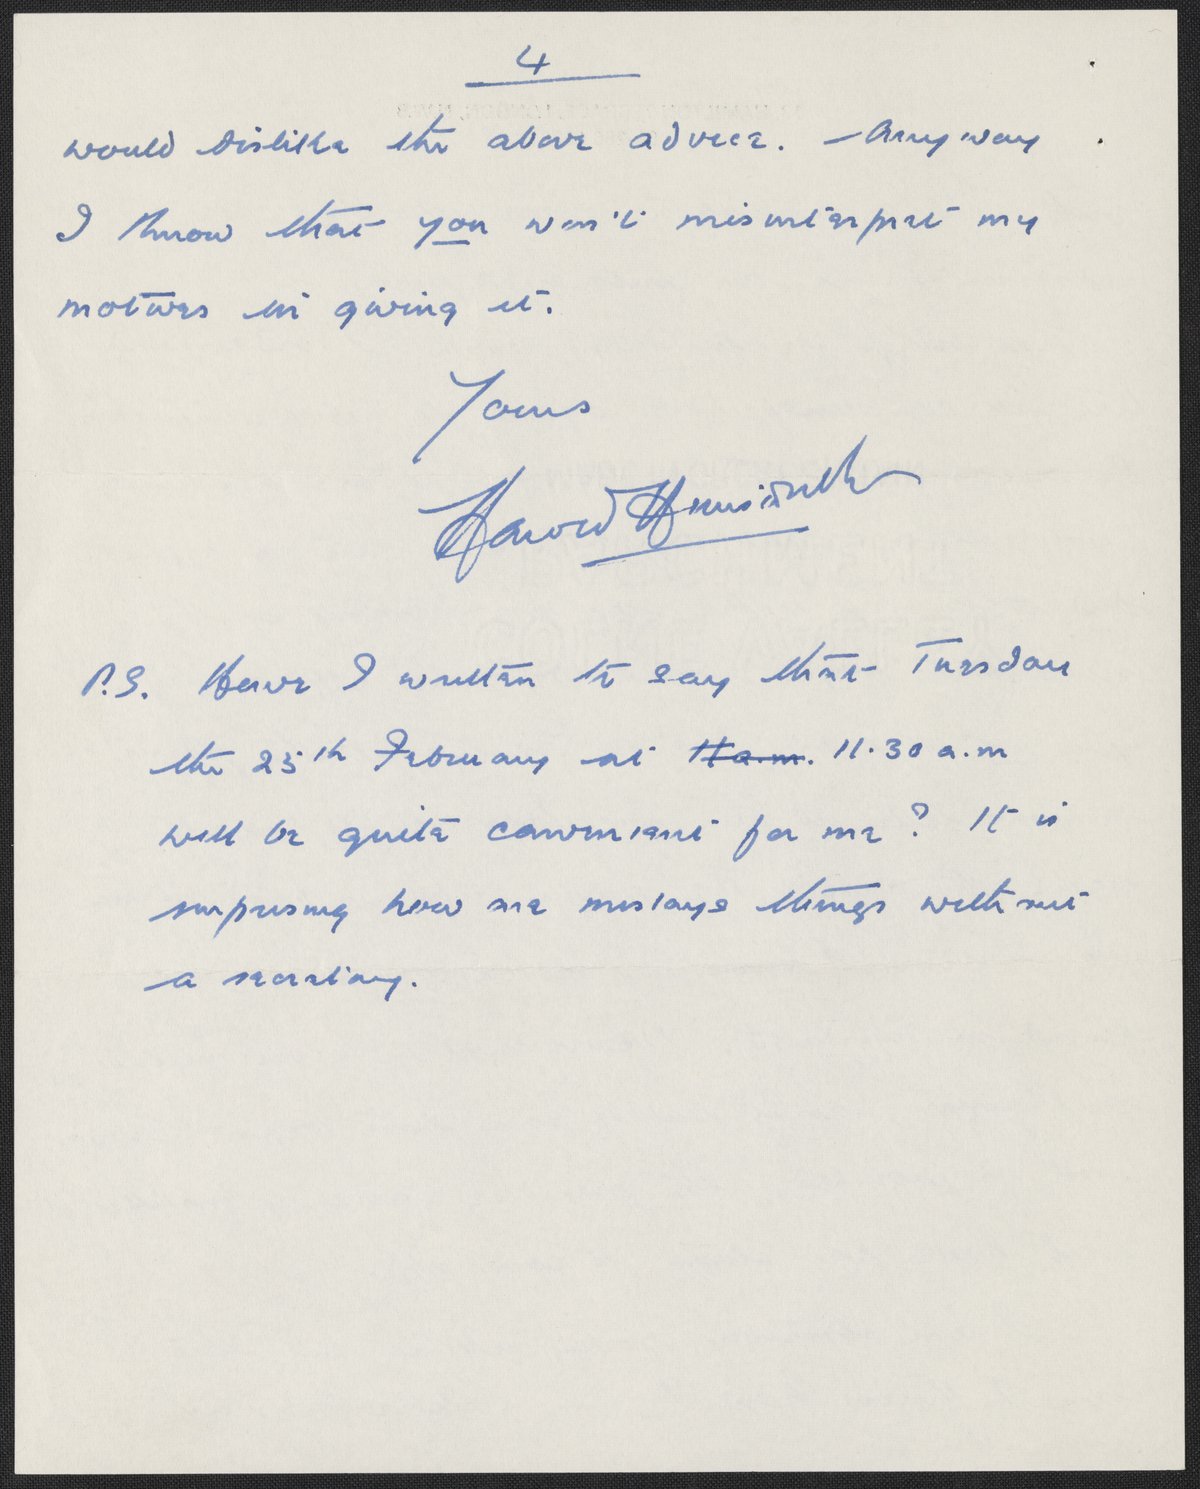 4
would dislike the above advice. Anyway
I know that you won't misinterpret my
motives in giving it.
Yours
Harold
P.S. Have I written to say that Tuesday
the 25th February at 11 a.m. 11.30 a.m
will be quite convenient for me? It is
surprising how one mislays things without
a secretary.